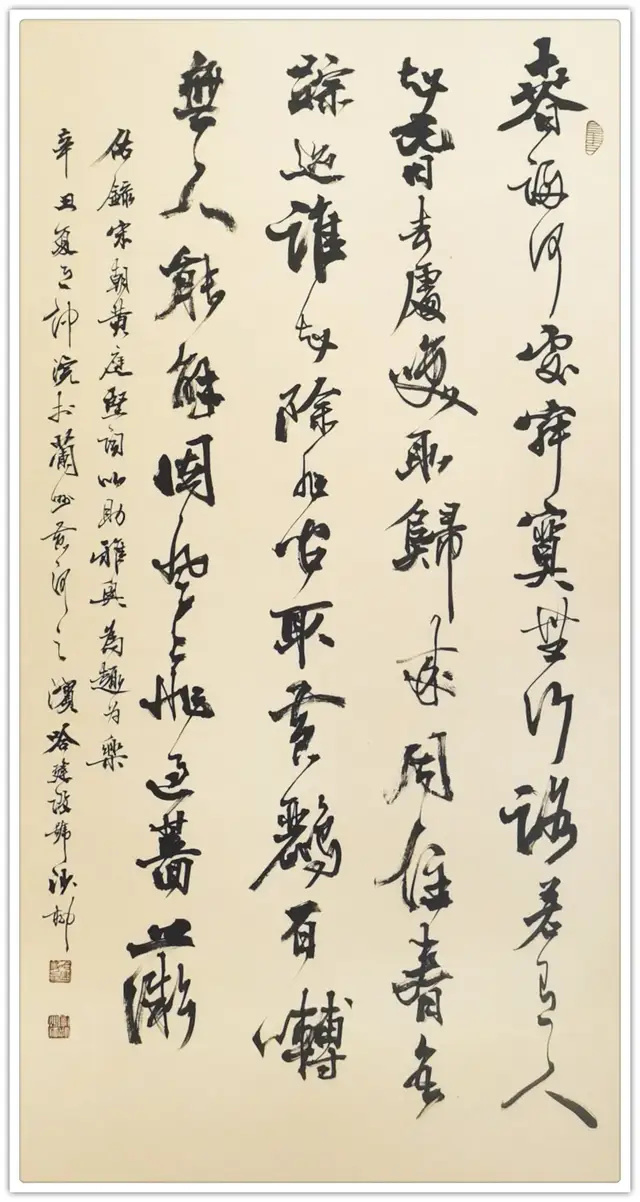 春歸何處寂寞無行路若有人
知春去處喚取歸來同住春無
蹤迹誰知除非问取黄鸝百囀
無人能解因風飛過薔薇
錄宋朝黄庭堅詞以助雅興為趣为樂
辛丑夏 浣於蘭州黄河之濱哈建設